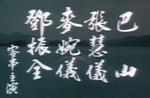 巴山
張慧儀
麥婉儀
鄧振全
主演